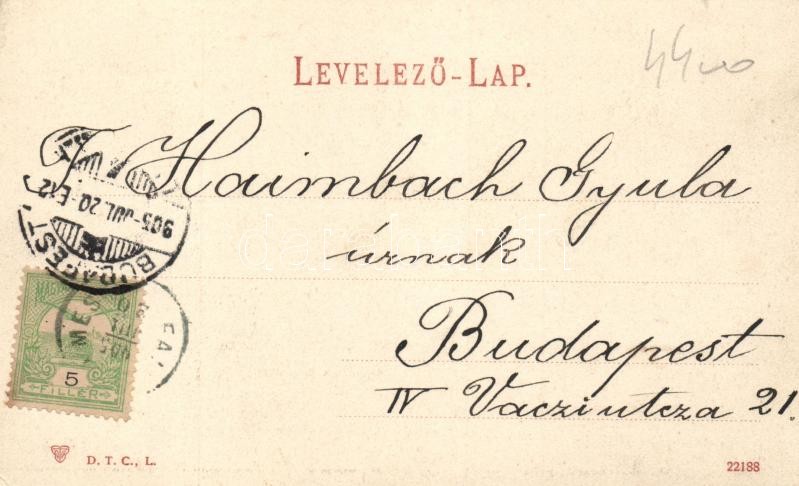 4400
LEVELEZŐ-LAP.
T. Haimbach Gyula
úrnak
Budapest
IV Vacziutcza 21.
BUDAPEST
905 JUL 20 E.12
MAGYAR
5
FILLÉR
D. T. C., L.
22188